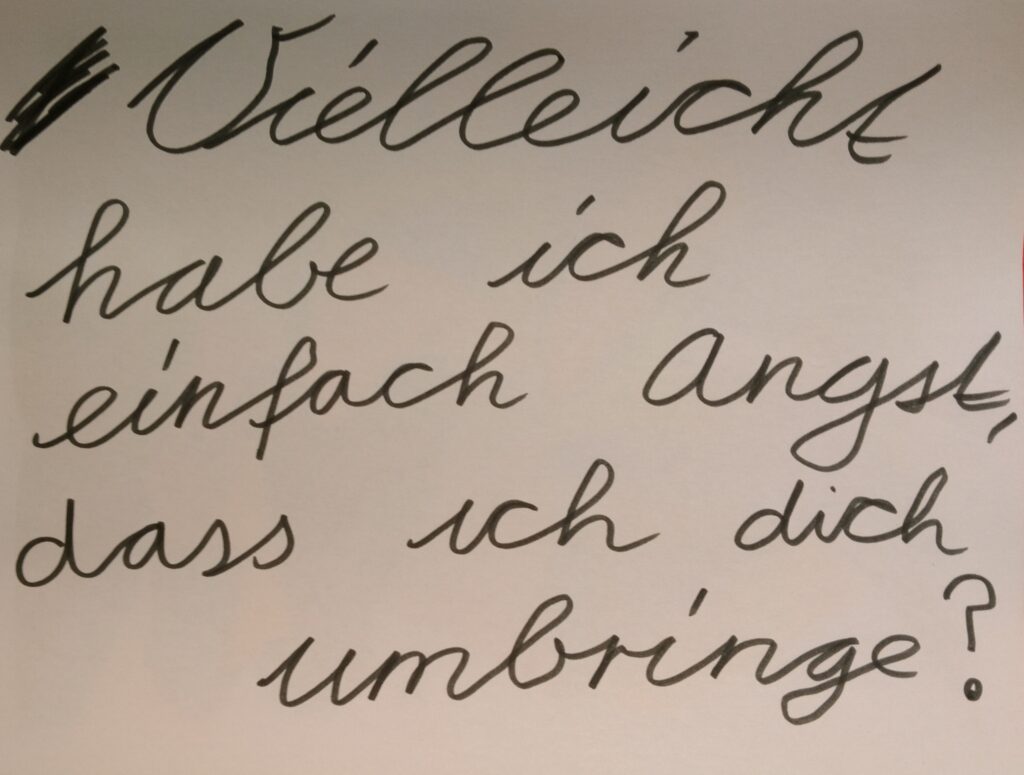 Vielleicht
habe ich
einfach Angst,
dass ich dich
umbringe?